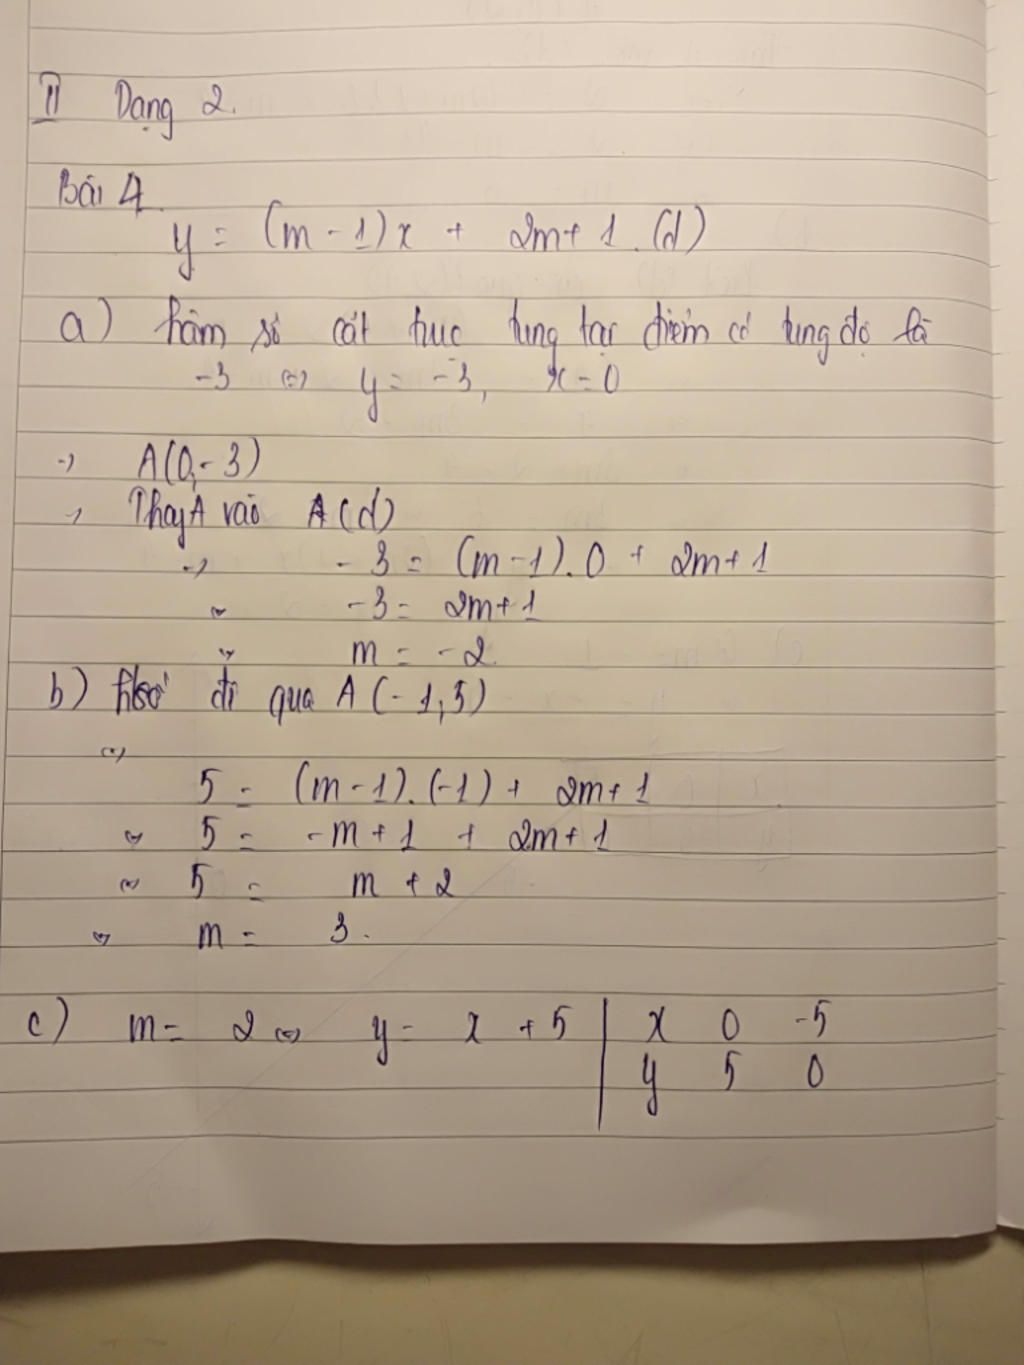 II Dạng 2.
Bài 4.
y = (m - 1)x + 2m + 1. (d)
a) hàm số cắt trục tung tại điểm có tung độ là
-3 <=> y = -3, x = 0
-> A(0,-3)
-> Thay A vào A(d)
-> - 3 = (m - 1). 0 + 2m + 1
<=> -3 = 2m + 1
<=> m = -2.
b) đi qua A (-1,5)
<=>
5 = (m - 1). (-1) + 2m + 1
<=> 5 = -m + 1 + 2m + 1
<=> 5 = m + 2
<=> m = 3.
c) m = 2 <=> y = x + 5 | x 0 -5
y 5 0